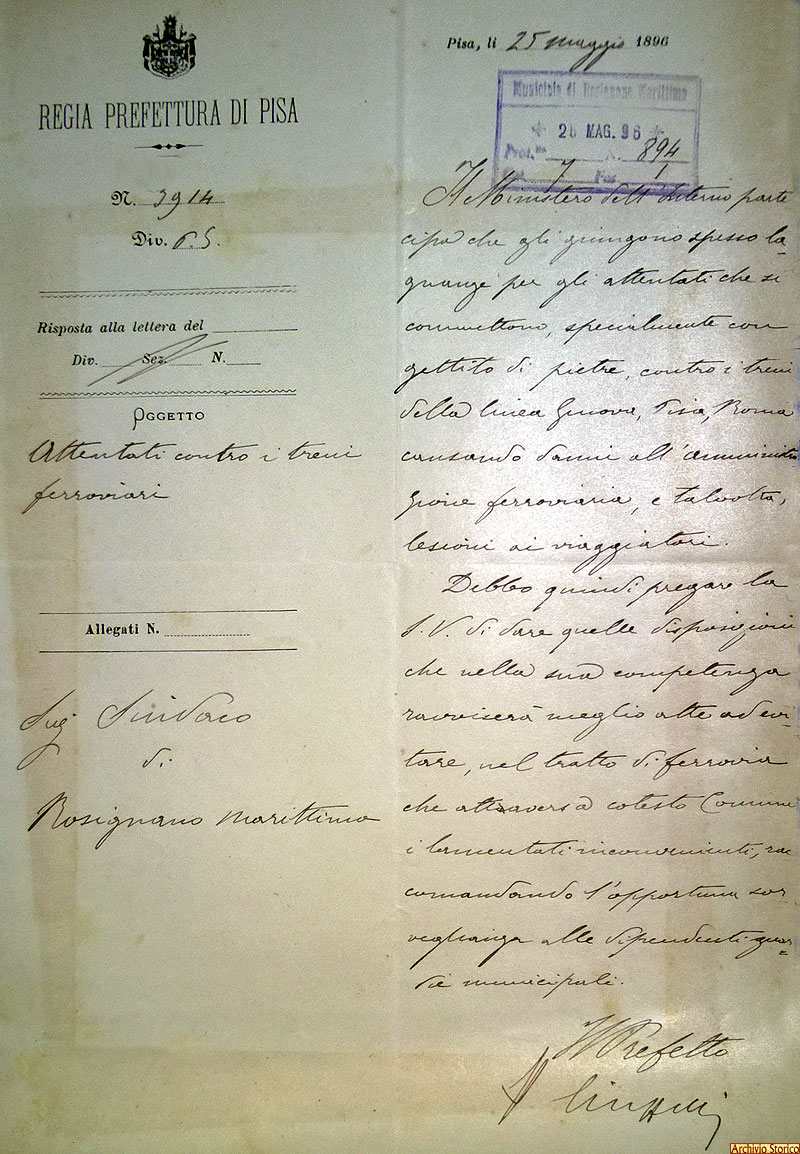 REGIA PREFETTURA DI PISA
N. 3914
Div. P.S.
Risposta alla lettera del
Div. Sez. N.
OGGETTO
Attentati contro i treni
ferroviari
Allegati N.
Sig Sindaco
di
Rosignano Marittimo
Pisa, li 25 maggio 1896
Municipio di Rosignano Marittimo
26 MAG. 96
Prot. N. 894
Cat. 7 Fas. 1
Il Ministero dell'Interno parte
cipa che gli giungono spesso la-
gnanze per gli attentati che si
commettono, specialmente con
gettito di pietre, contro i treni
della linea Genova, Pisa, Roma
causando danni all'amministra
zione ferroviaria, e talvolta,
lesioni ai viaggiatori.
Debbo quindi pregare la
S. V. di dare quelle disposizioni
che nella sua competenza
ravviserà meglio atte ad evi-
tare, nel tratto di ferrovia
che attraversa cotesto Comune
i lamentati inconvenienti, rac
comandando l'opportuna sor
veglianza alle dipendenti guar=
die municipali.
Il Prefetto